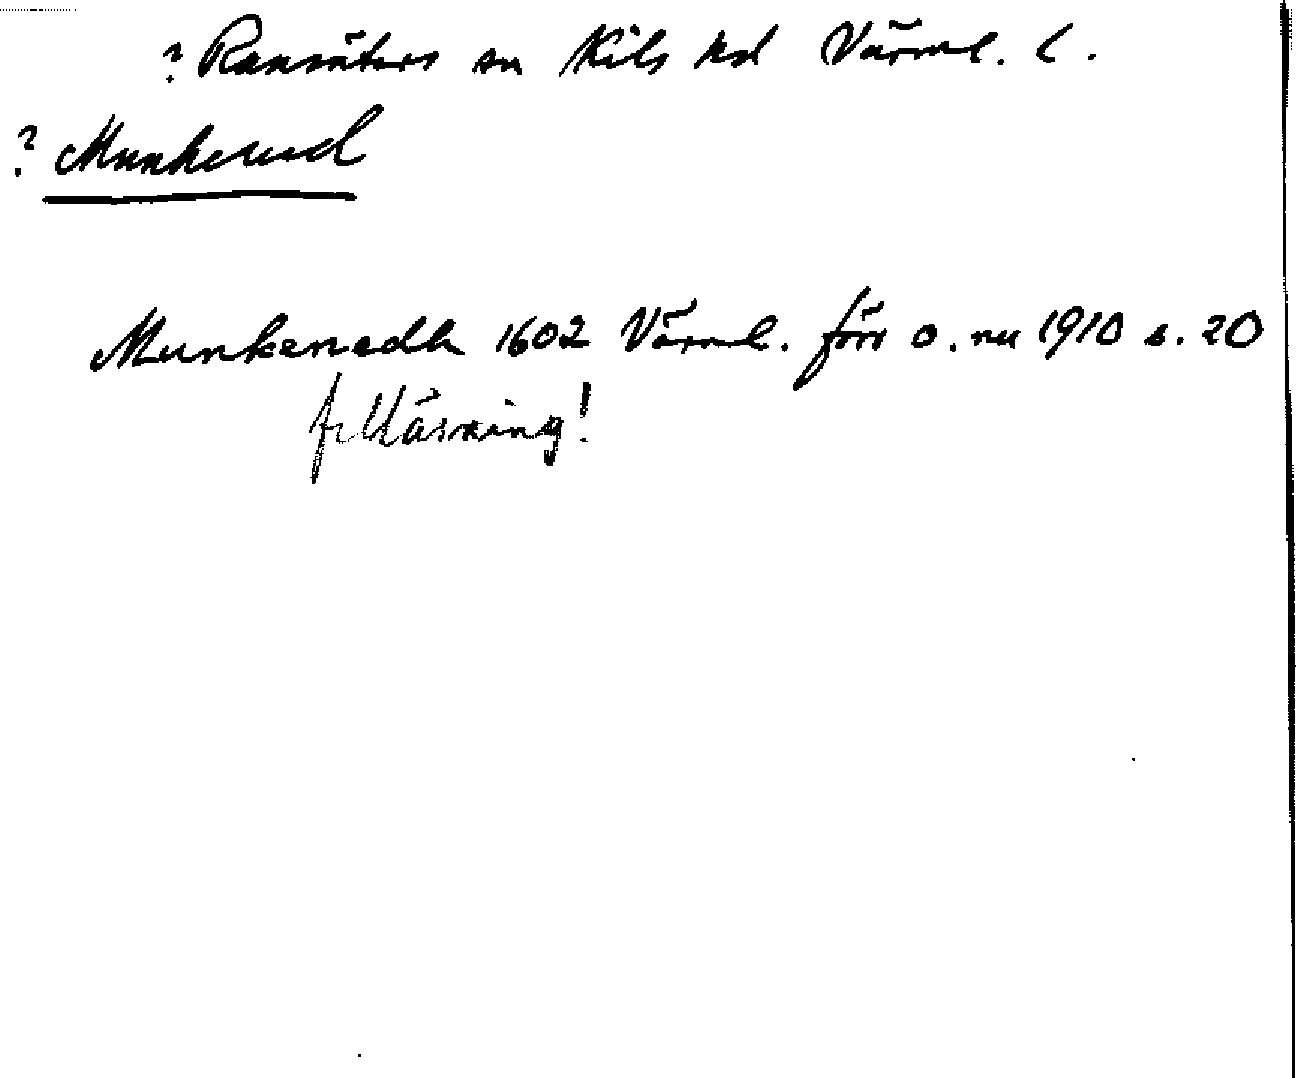 ? Ransäters sn Kils hd Värml. l.
? Munkerud
Munkerudh 1602 Värml. förr o. nu 1910 s. 20
fr Käsning!